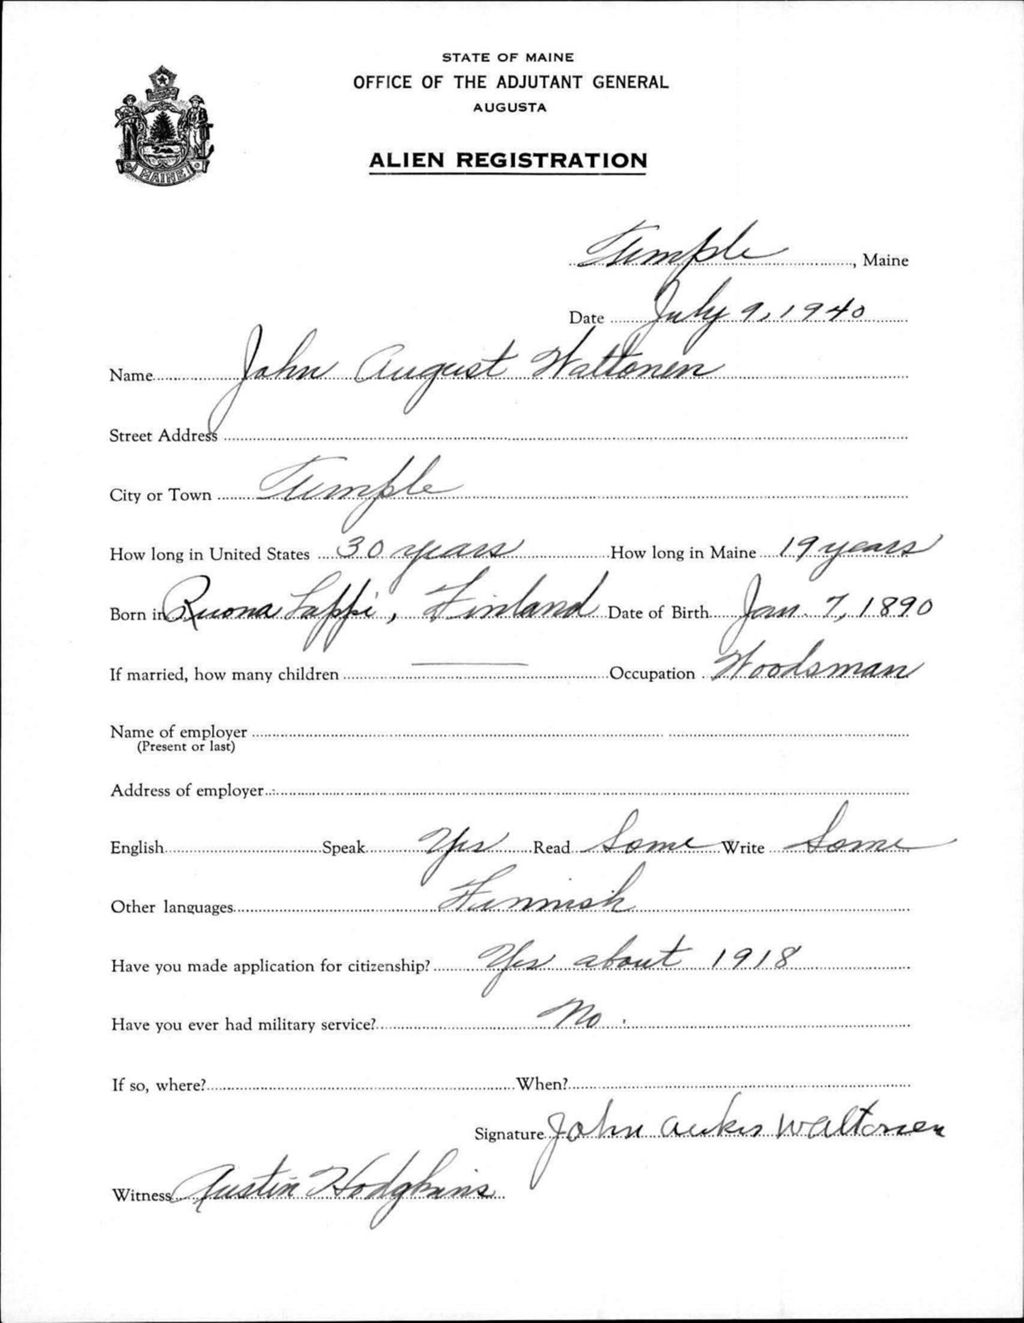 STATE OF MAINE
OFFICE OF THE ADJUTANT GENERAL
AUGUSTA
ALIEN REGISTRATION
MAINE
Temple, Maine
Date July 9, 1940
Name John August Waltonen
Street Address
City or Town Temple
How long in United States 30 years How long in Maine 19 years
Born in Ruona Lappi, Finland Date of Birth Jan. 7, 1890
If married, how many children — Occupation Woodsman
Name of employer
(Present or last)
Address of employer
English Speak Yes Read Some Write Some
Other languages Finnish
Have you made application for citizenship? Yes about 1918
Have you ever had military service? No.
If so, where? When?
Signature John Aukus Waltonen
Witness Austin Hodgkins